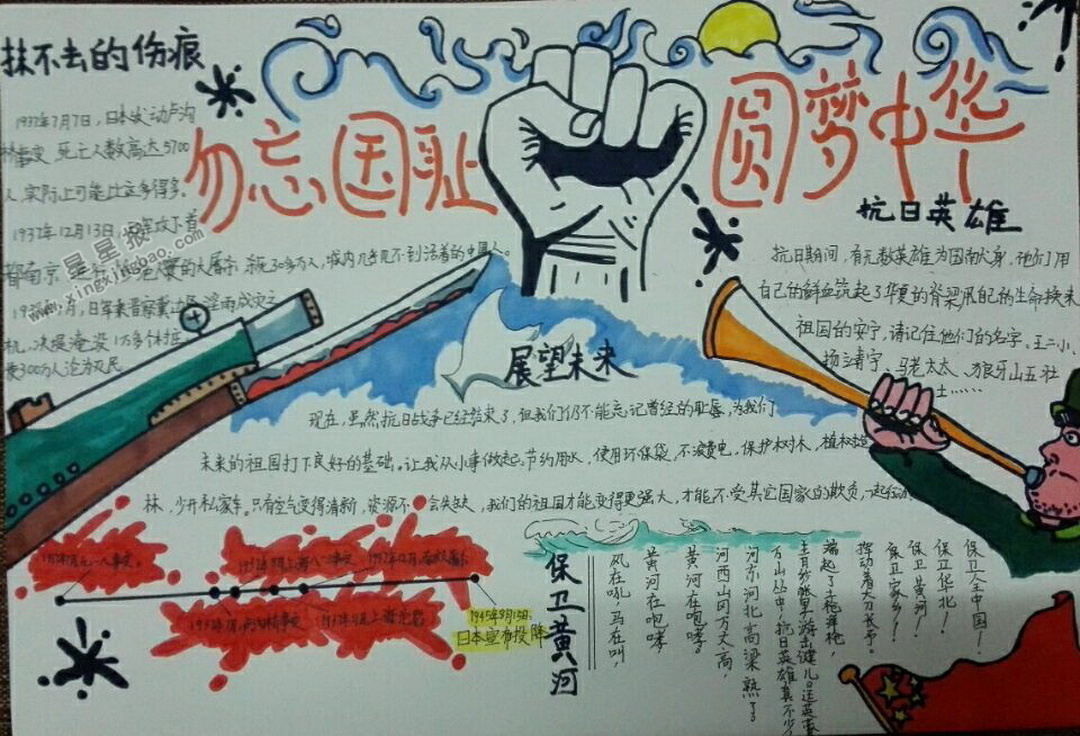 抹不去的伤痕
勿忘国耻
圆梦中华
1937年7月7日，日本发动卢沟
桥事变 死亡人数高达5700
人 实际上可能比这多得多。
1937年12月13日，日军攻下首
都南京 的大屠杀 杀死30多万人，城内几乎见不到活着的中国人。
月，日军乘晋察冀边区 淫雨成灾之
机，决堤淹没 1万多村庄，
使300万人沦为难民
星星报
www.xingxingbao.com
抗日英雄
抗日期间，有无数英雄为国献身，他们用
自己的鲜血筑起了华夏的脊梁用自己的生命换来
祖国的安宁，请记住他们的名字。王二小、
杨靖宇、马老太太、狼牙山五壮
士……
展望未来
现在，虽然抗日战争已经结束了，但我们仍不能忘记曾经的耻辱，为我们
未来的祖国打下良好的基础。让我从小事做起，节约用水，使用环保袋，不浪费电，保护树木，植树造
林，少开私家车。只有空气变得清新，资源不会失缺，我们的祖国才能变得更强大，才能不受其它国家的欺负，一起行动
九一八事变。
1945年8月15日，
日本宣布投降
保卫黄河
风在吼，马在叫，
黄河在咆哮
黄河在咆哮。
河西山冈万丈高，
河东河北高粱熟了
万山丛中，抗日英雄真不少
青纱帐里，游击健儿逞英豪
端起了土枪洋枪，
挥动着大刀长矛。
保卫家乡！
保卫黄河！
保卫华北！
保卫全中国！